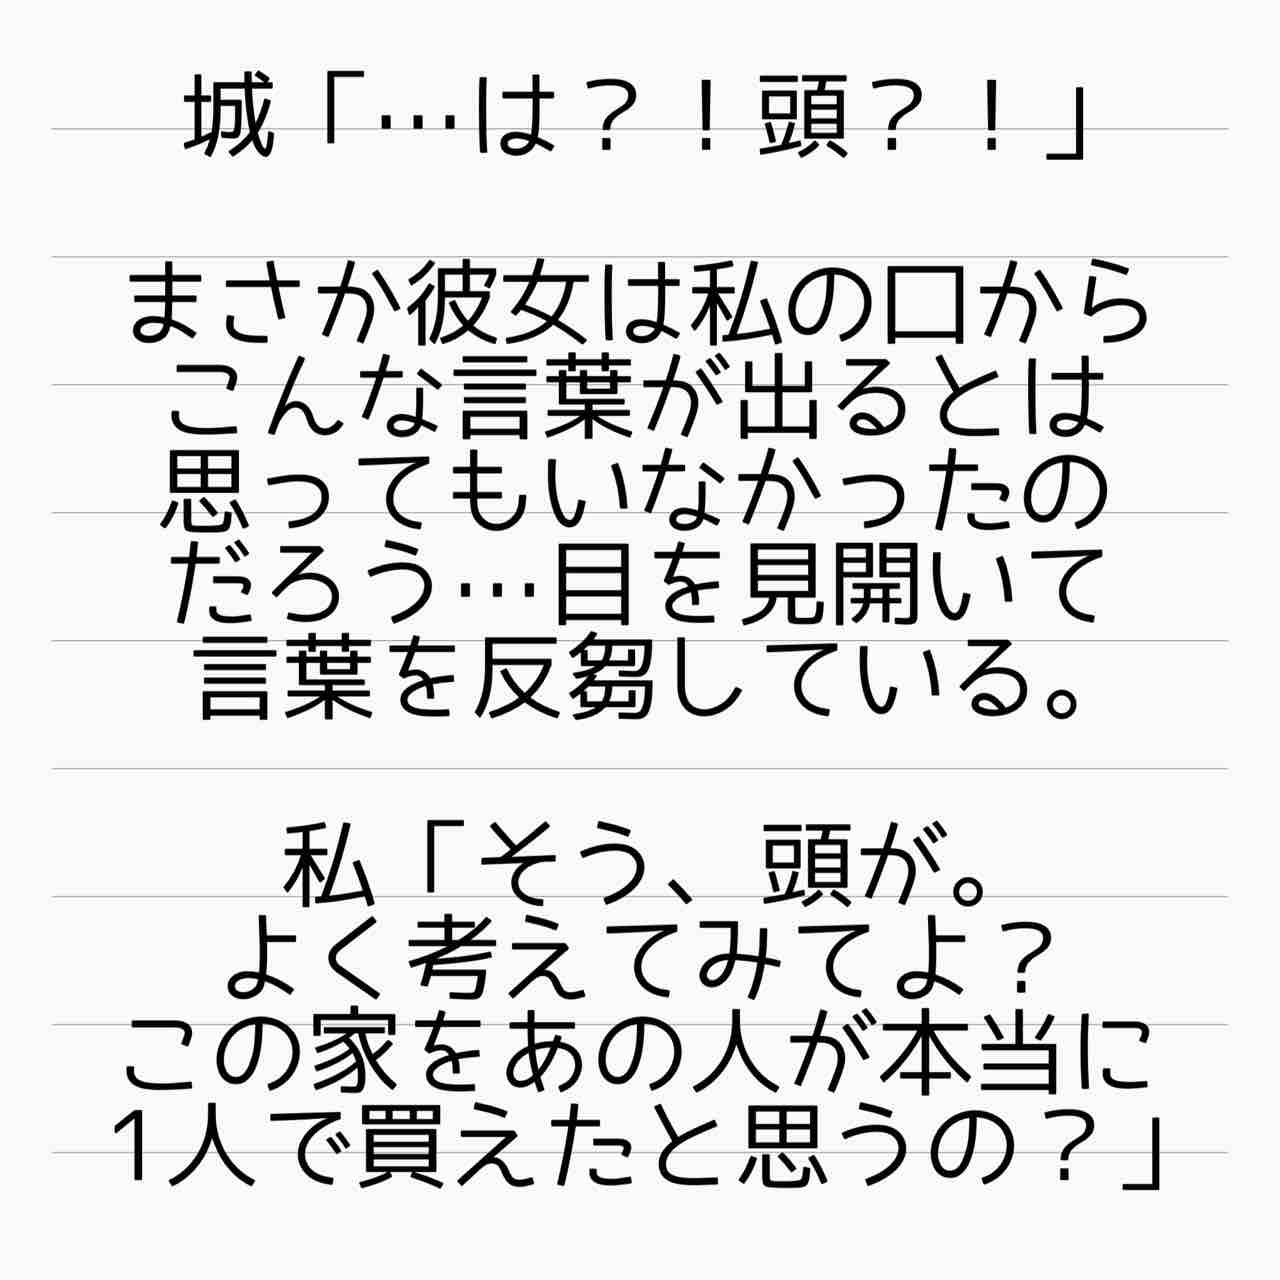 城「…は？！頭？！」
まさか彼女は私の口から
こんな言葉が出るとは
思ってもいなかったの
だろう…目を見開いて
言葉を反芻している。
私「そう、頭が。
よく考えてみてよ？
この家をあの人が本当に
1人で買えたと思うの？」